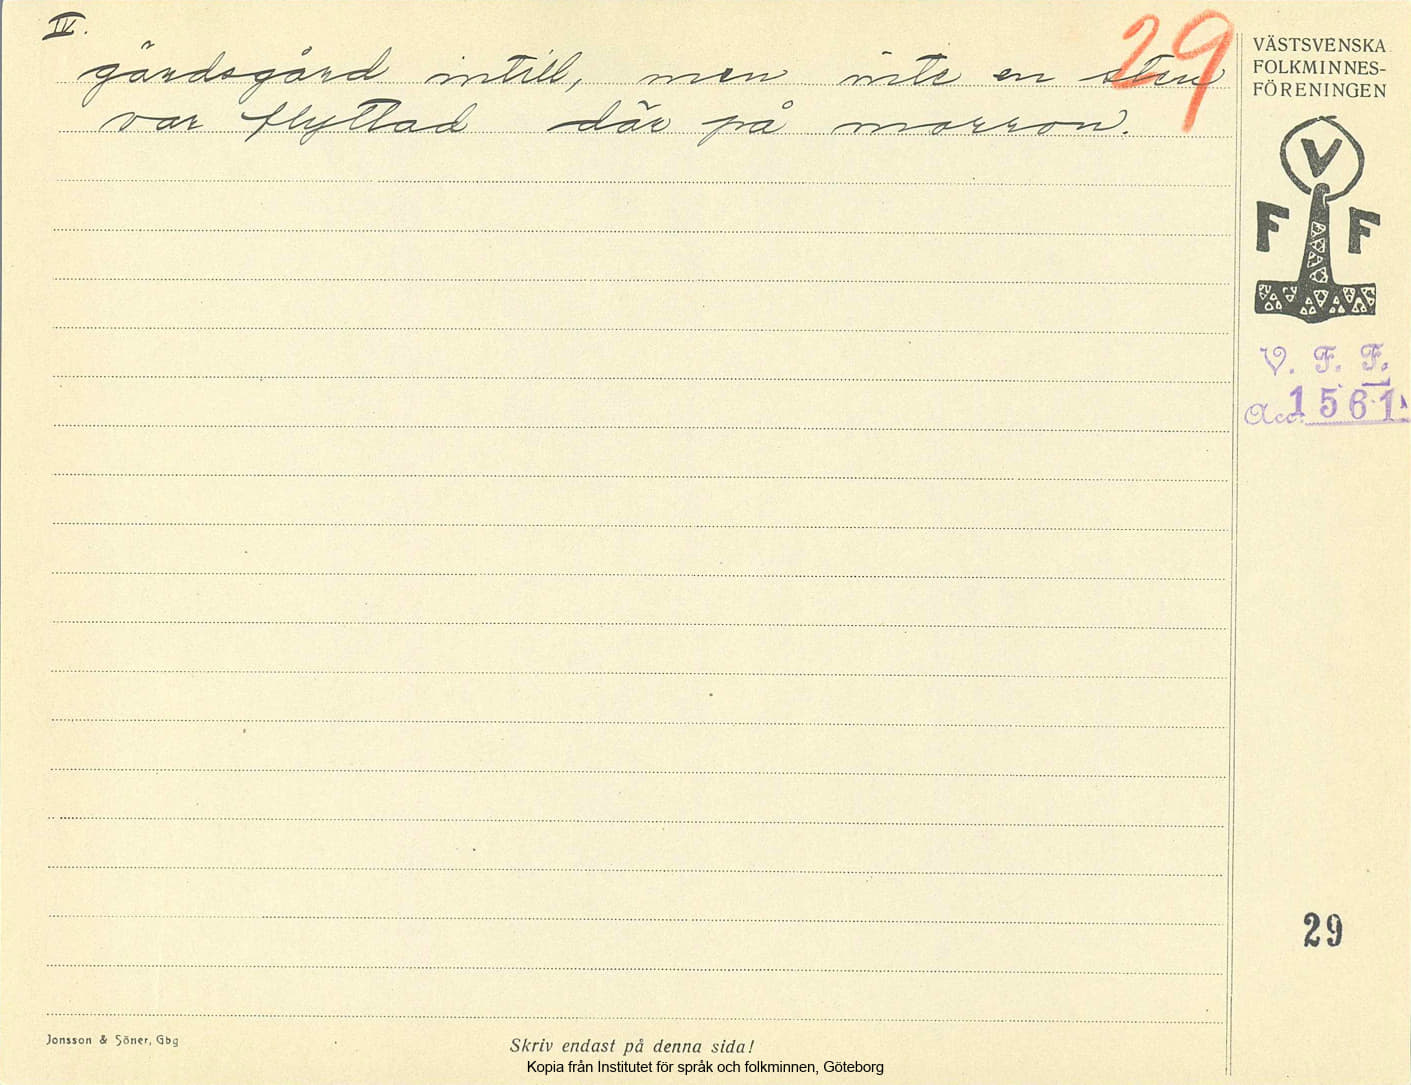 IV.
29
gärdsgård intill, men inte en sten
var flyttad där på morron.
VÄSTSVENSKA
FOLKMINNES-
FÖRENINGEN
V
F F
V. F. F.
Acc. 1561
29
Jonsson & Söner, Gbg
Skriv endast på denna sida!
Kopia från Institutet för språk och folkminnen, Göteborg